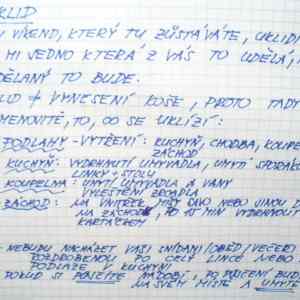 KLID
VÍKEND, KTERÝ TU ZŮSTÁVÁTE, UKLIDÍ
MI JEDNO KTERÁ Z VÁS TO UDĚLÁ,
DĚLANÝ TO BUDE.
LID + VYNESENÍ KOŠE, PROTO TADY
MENOVITĚ, TO, CO SE UKLÍZÍ:
PODLAHY - VYTŘENÍ: KUCHYŇ, CHODBA, KOUPE
ZÁCHOD
KUCHYŇ: VYDRHNUTÍ UMYVADLA, UMYTÍ SPORÁKU
LINKY + STOLU
KOUPELNA: UMYTÍ UMYVADLA A VANY
VYLEŠTĚNÍ ZRCADLA
ZÁCHOD: NA VNITŘEK MÍSY SAVO NEBO JINOU D
NA ZÁCHODK, PO 15 MIN VYDRHNOUT
KARTÁČEM
NEBUDU NACHÁZET VAŠI SNÍDANI/OBĚD/VEČEŘI
ROZDROBENOU PO CELÝ LINCE NEBO
PODLAZE V KUCHYNI
POKUD SI PŮJČÍTE NÁDOBÍ, PO POUŽITÍ BUD
NA SVÉM MÍSTĚ A UMYTÉ